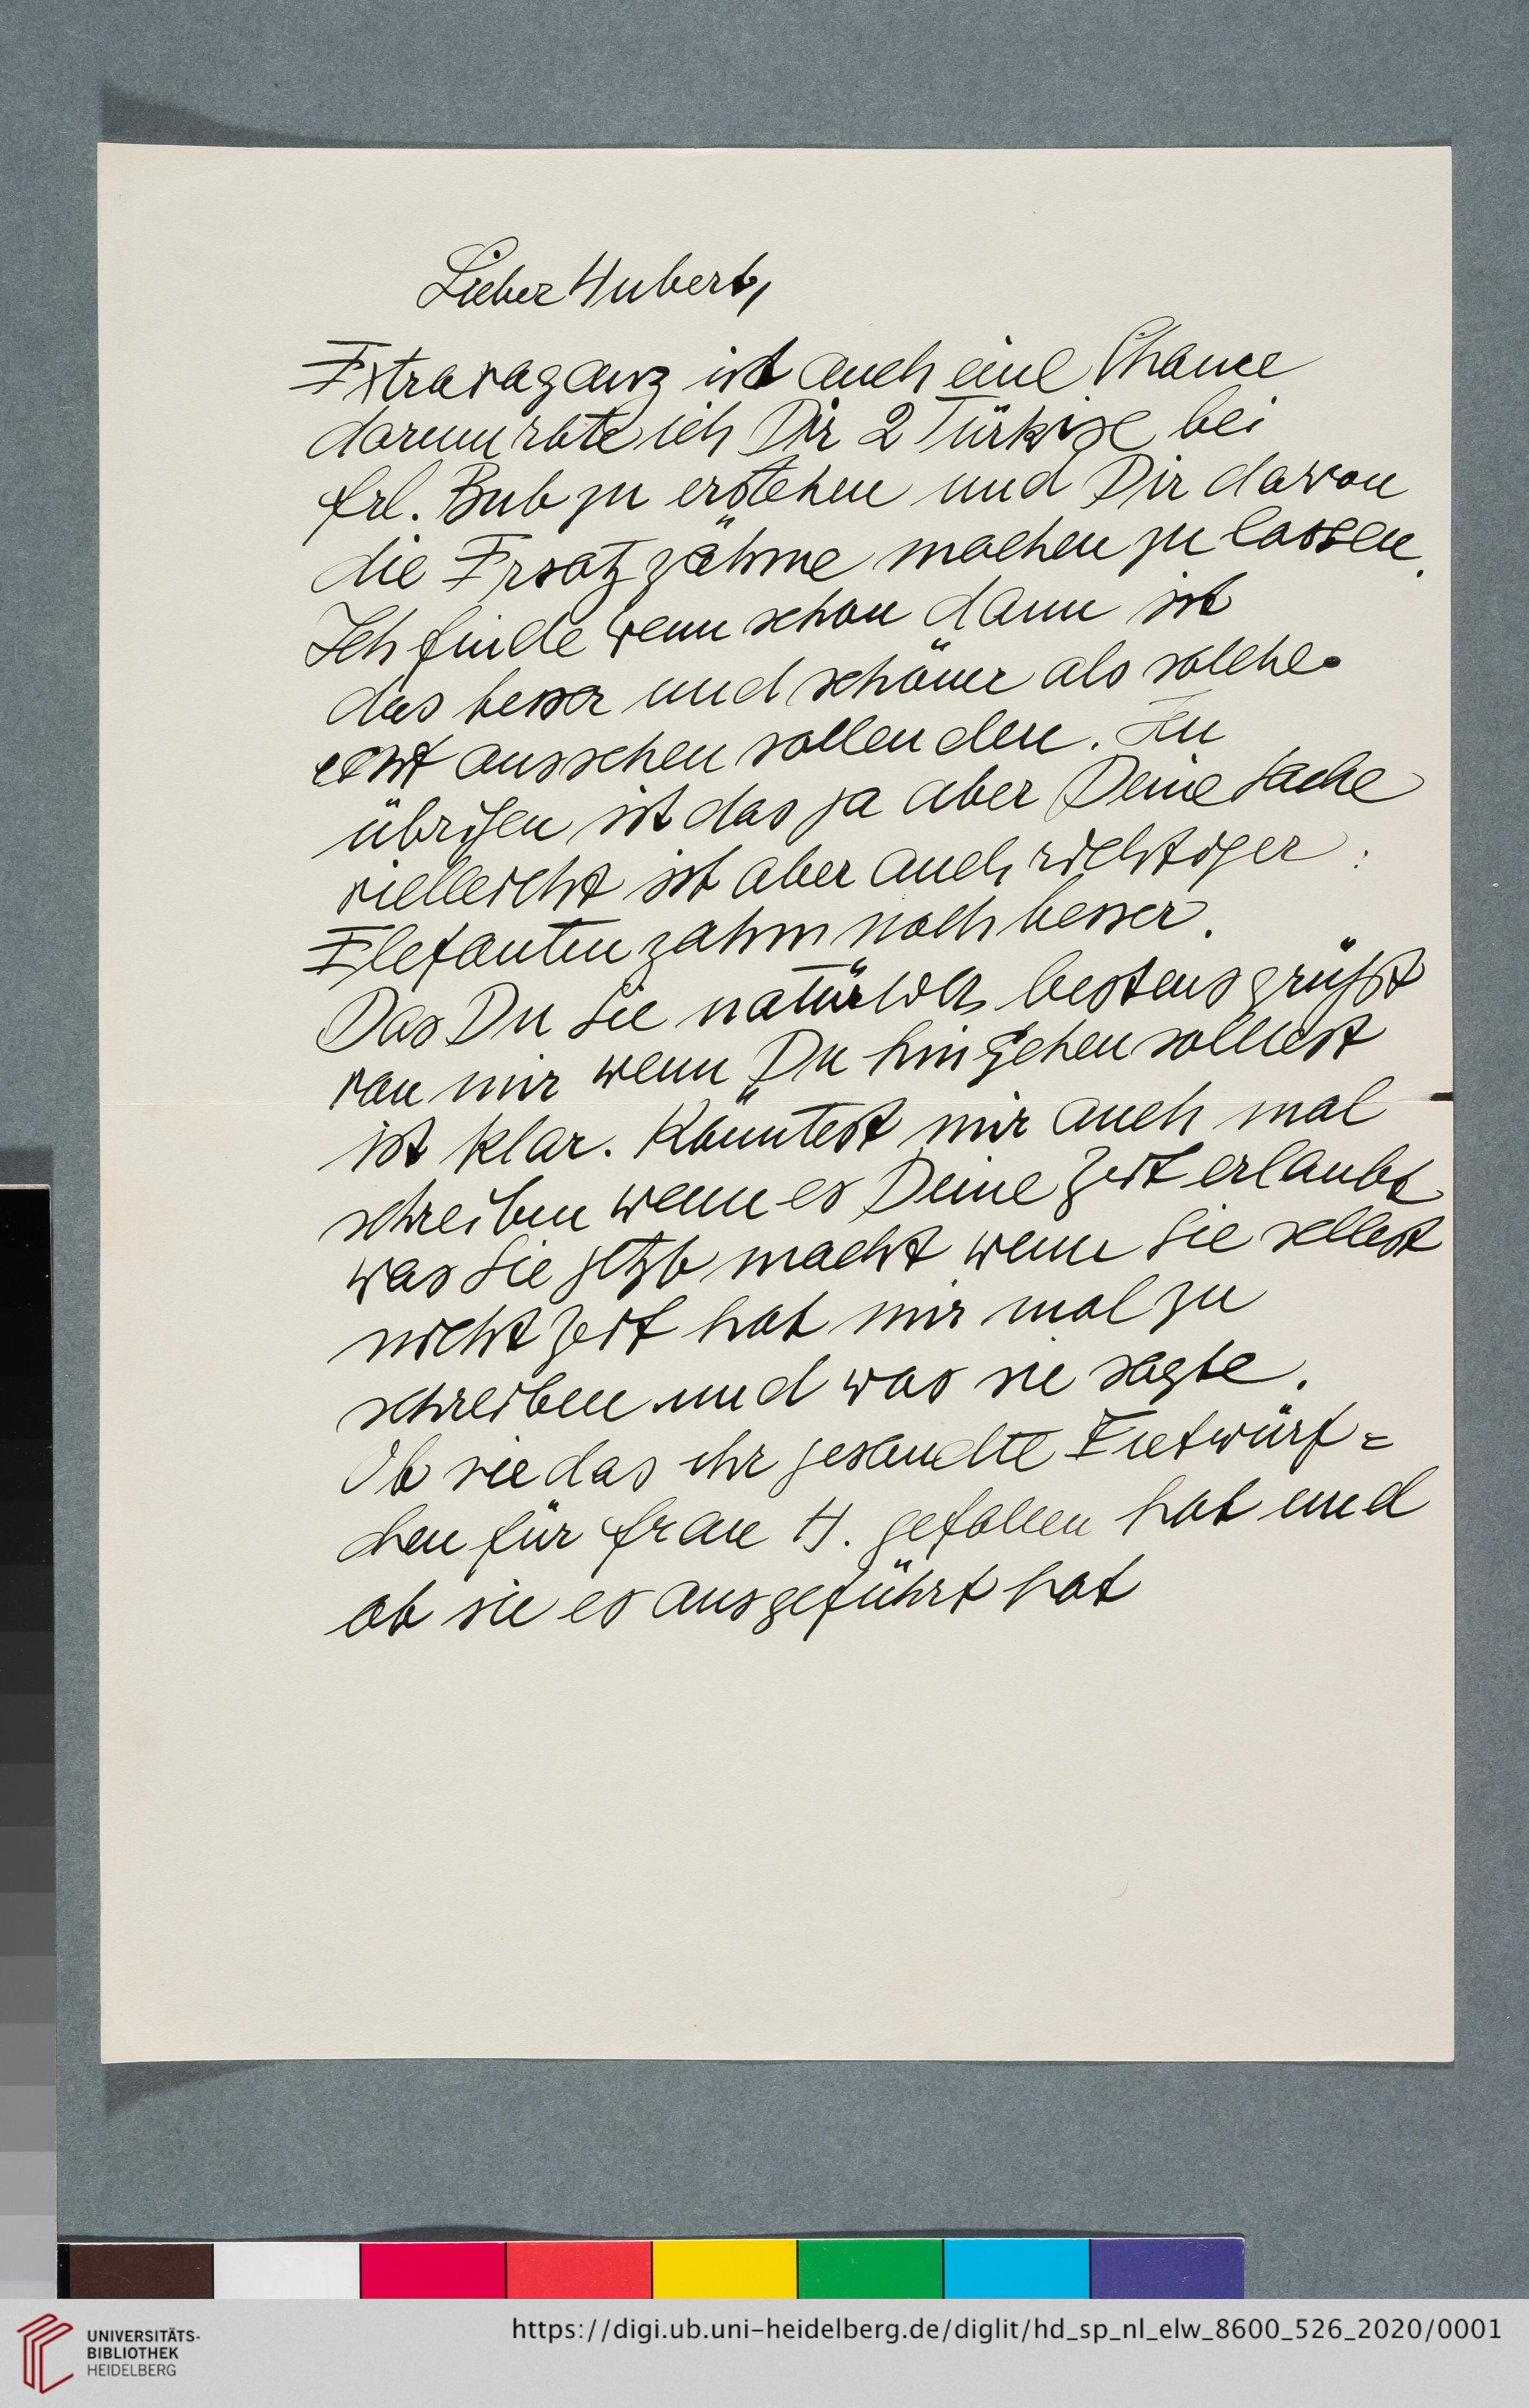 Lieber Hubert,
Extravaganz ist auch eine Chance
darum rate ich Dir 2 Türkise bei
Frl. Bub zu erstehen und Dir davon
die Ersatzzähne machen zu lassen.
Ich finde wenn schon dann ist
das besser und schöner als solche
echt aussehen sollenden. Im
übrigen ist das ja aber Deine Sache
vielleicht ist aber auch richtiger
Elefantenzahn noch besser.
Das Du Sie natürlich bestens grüßt
von mir wenn Du hingehen solltest
ist klar. Könntest mir auch mal
schreiben wenn es Deine Zeit erlaubt
was Sie jetzt macht wenn Sie selbst
nicht Zeit hat mir mal zu
schreiben und was sie sagte.
Ob sie das ihr gesendte Entwürf=
chen für Frau H. gefallen hat und
ob sie es ausgeführt hat
UNIVERSITÄTS-
BIBLIOTHEK
HEIDELBERG
https://digi.ub.uni-heidelberg.de/diglit/hd_sp_nl_elw_8600_526_2020/0001